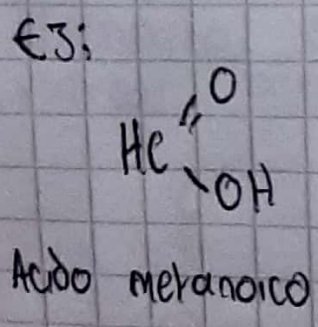 EJ:
O
HC
OH
Acido metanoico